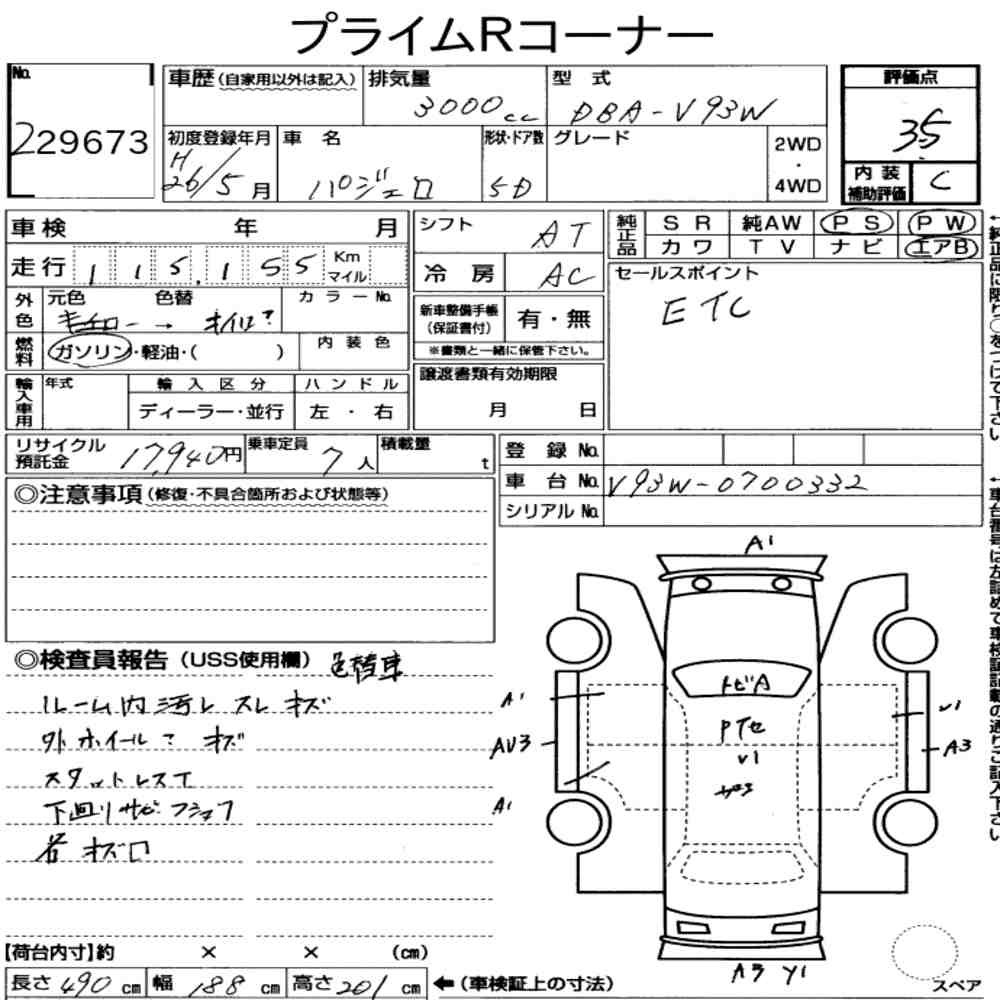 プライムRコーナー
No.
229673
車歴(自家用以外は記入)
排気量
3000cc
型 式
DBA-V93W
初度登録年月
H
26/5月
車 名
パジェロ
形状・ドア数
5D
グレード
2WD
・
4WD
評価点
3.5
内装
補助評価
C
車検 年 月
走行 115,155 Km
マイル
外色
元色 色替
カラーNo.
燃料
ガソリン・軽油・( )
内装色
輸入車用
年式
輸入区分
ハンドル
ディーラー・並行
左・右
シフト
AT
冷房
AC
新車整備手帳
(保証書付)
有・無
※書類と一緒に保管下さい。
譲渡書類有効期限
月 日
純正品
SR 純AW PS PW
カワ TV ナビ エアB
セールスポイント
ETC
←純正品に限り○をつけて下さい
リサイクル
預託金
17,940円
乗車定員
7人
積載量
t
登録No.
車台No. V93W-0700332
シリアルNo.
←車台番号は左詰めで車検証記載の通りご記入下さい
◎注意事項(修復・不具合箇所および状態等)
◎検査員報告(USS使用欄) 色替車
ルーム内汚レ スレ キズ
外 ホイール キズ
スタットレスT
下廻りサビ
各 キズ凹
A1
トビA
PTセ
V1
A1
AU3
A1
A3
A3 Y1
【荷台内寸】約 × × (cm)
長さ490cm 幅188cm 高さ201cm
←(車検証上の寸法)
スペア